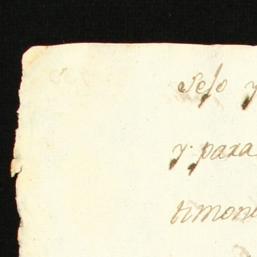 Selo y
y para
timoni